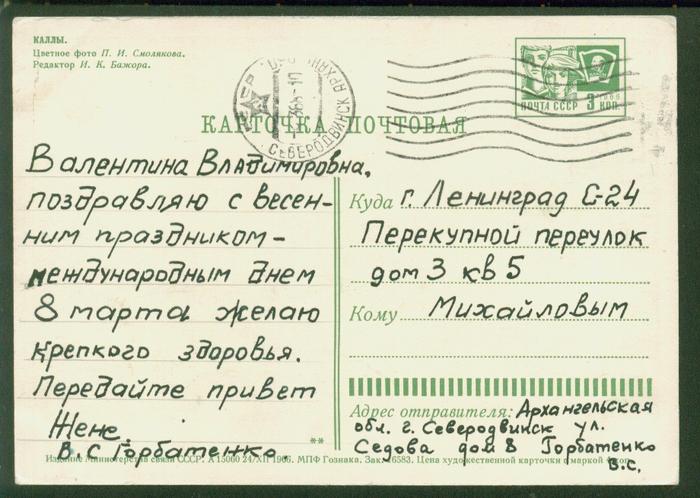 КАЛЛЫ.
Цветное фото П. И. Смолякова.
Редактор И. К. Бажора.
СССР
СЕВЕРОДВИНСК АРХАН
ПОЧТА СССР 3 КОП
1966
КАРТОЧКА ПОЧТОВАЯ
Валентина Владимировна,
поздравляю с весен-
ним праздником –
международным днем
8 марта желаю
крепкого здоровья.
Передайте привет
Жене.
В. С Горбатенко.
Куда г. Ленинград С-24
Перекупной переулок
дом 3 кв 5
Кому Михайловым
Адрес отправителя: Архангельская
обл. г. Северодвинск ул.
Седова дом 8 Горбатенко
В.С.
**
Издание Министерства связи СССР. А 15000 24/XII 1966. МПФ Гознака. Зак. 16583. Цена художественной карточки с маркой коп.